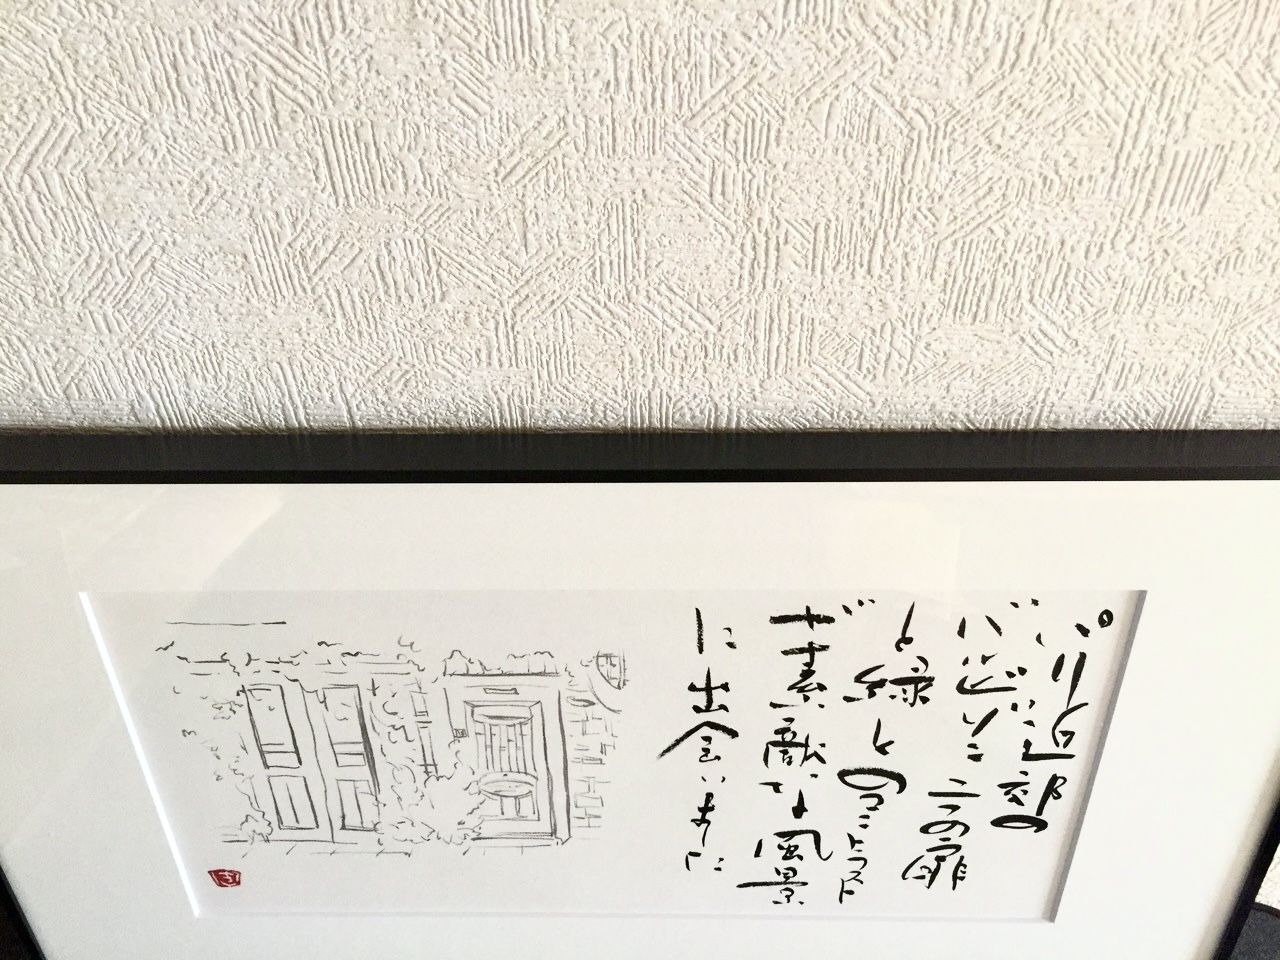 パリ近郊の
二つの扉
と緑とのコントラスト
が素敵な風景
に出会いました